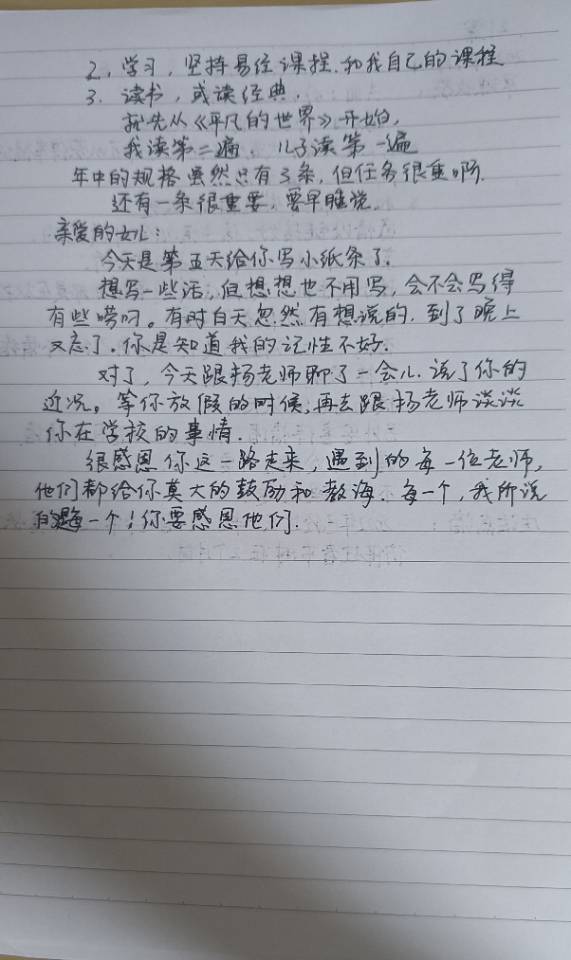 2, 学习, 坚持易经课程, 和我自己的课程
3. 读书, 或读经典,
就先从《平凡的世界》开始,
我读第二遍, 儿子读第一遍
年中的规格虽然只有3条, 但任务很重啊.
还有一条很重要, 要早睡觉.
亲爱的女儿:
今天是第五天给你写小纸条了.
想写一些话, 但想想也不用写, 会不会写得
有些唠叨。有时白天忽然有想说的, 到了晚上
又忘了. 你是知道我的记性不好.
对了, 今天跟杨老师聊了一会儿, 说了你的
近况。等你放假的时候, 再去跟杨老师谈谈
你在学校的事情.
很感恩你这一路走来, 遇到的每一位老师,
他们都给你莫大的鼓励和教海. 每一个, 我所说
的是每一个! 你要感恩他们.